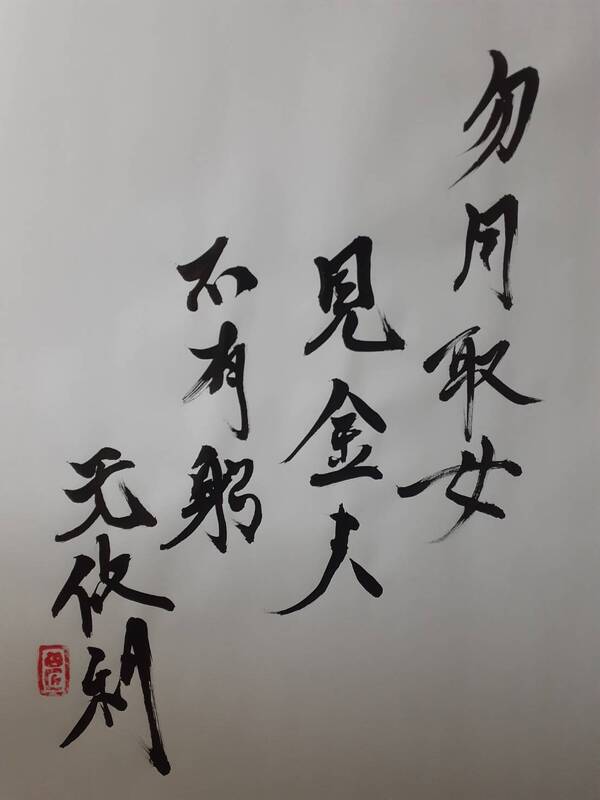 勿用取女
見金夫
不有躬
无攸利